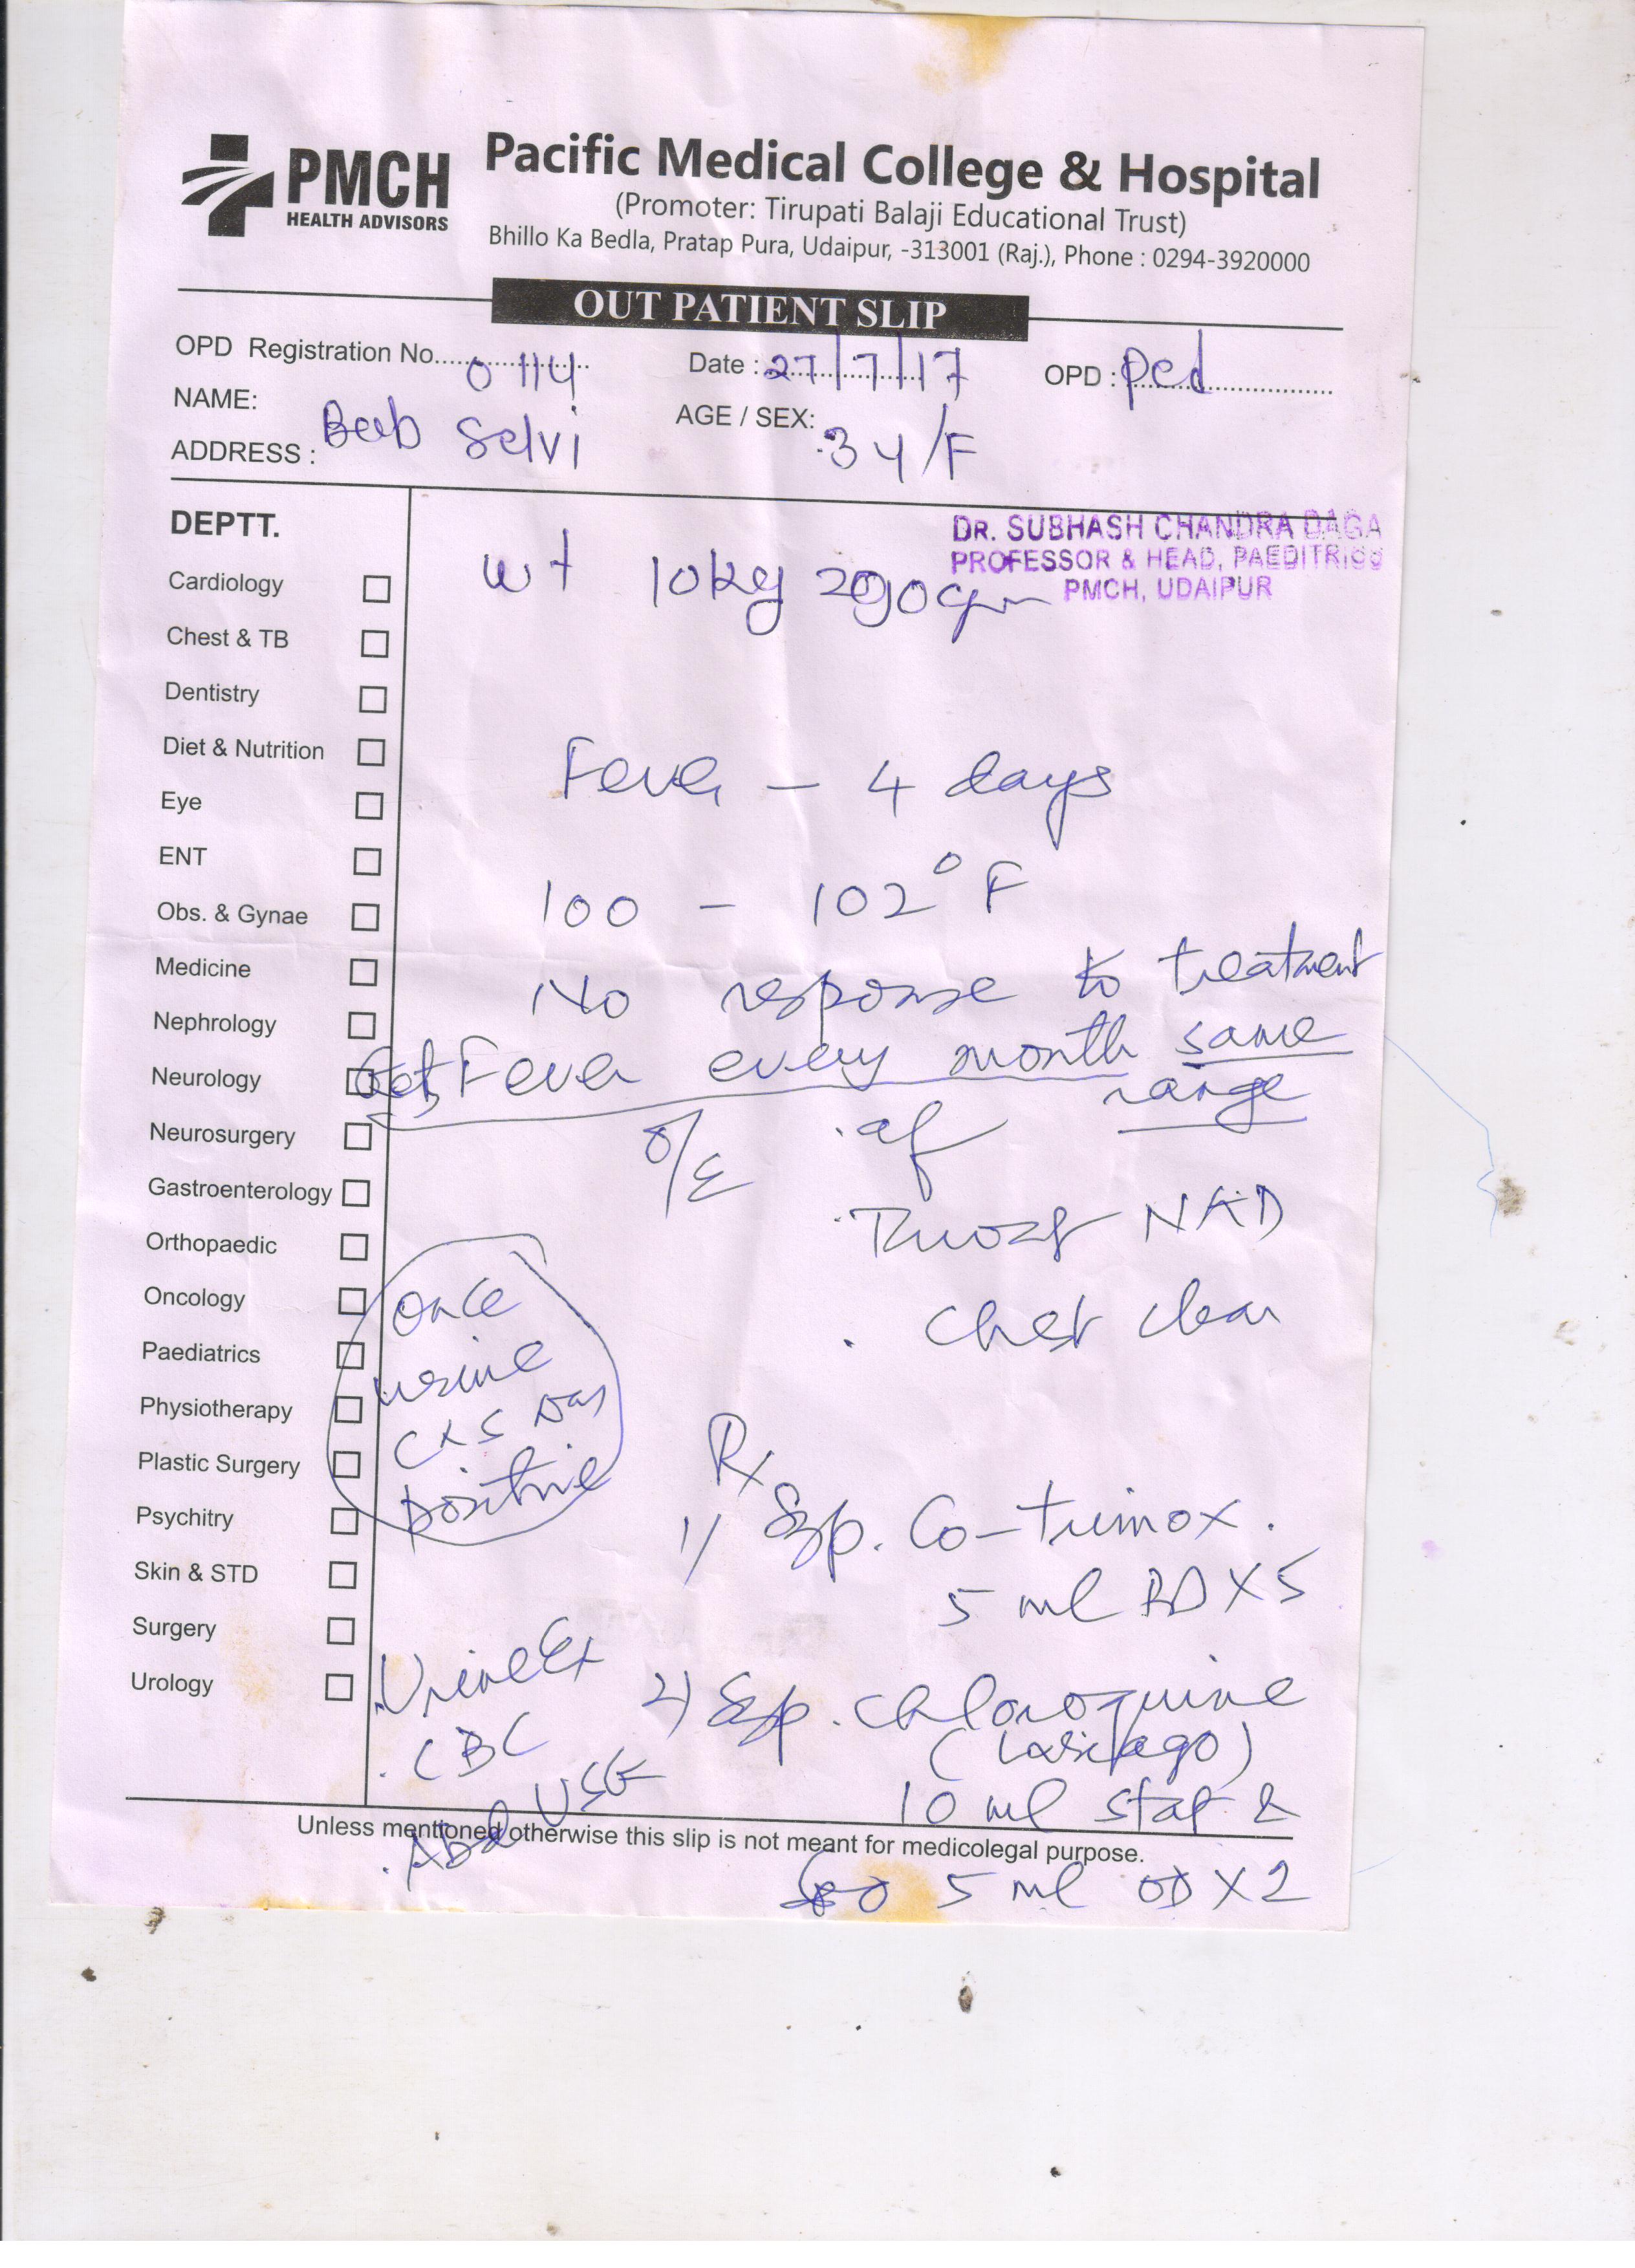 PMCH
HEALTH ADVISORS
Pacific Medical College & Hospital
(Promoter: Tirupati Balaji Educational Trust)
Bhillo Ka Bedla, Pratap Pura, Udaipur, -313001 (Raj.), Phone : 0294-3920000
OUT PATIENT SLIP
OPD Registration No. 0114 Date : 27/7/17 OPD : Ped
NAME: Selvi AGE / SEX: 3 y/F
ADDRESS :
DEPTT.
DR. SUBHASH CHANDRA DAGA
PROFESSOR & HEAD, PAEDITRICS
PMCH, UDAIPUR
wt 10kg gm
Cardiology
Chest & TB
Dentistry
Diet & Nutrition
Eye
ENT
Obs. & Gynae
Medicine
Nephrology
Neurology
Neurosurgery
Gastroenterology
Orthopaedic
Oncology
Paediatrics
Physiotherapy
Plastic Surgery
Psychitry
Skin & STD
Surgery
Urology
Fever - 4 days
100 - 102° F
No response to treatment
Gets Fever every month same
range
O/E . af
. Throat NAD
. Chest clear
once
urine
C & S was
positive
Rx
1) Syp. Co-trimox.
5 ml BD X 5
2) Syp. Chloroquine
(Lariago)
10 ml stat &
5 ml OD X 2
. Urine Ex
. CBC
. Abd USG
Unless mentioned otherwise this slip is not meant for medicolegal purpose.